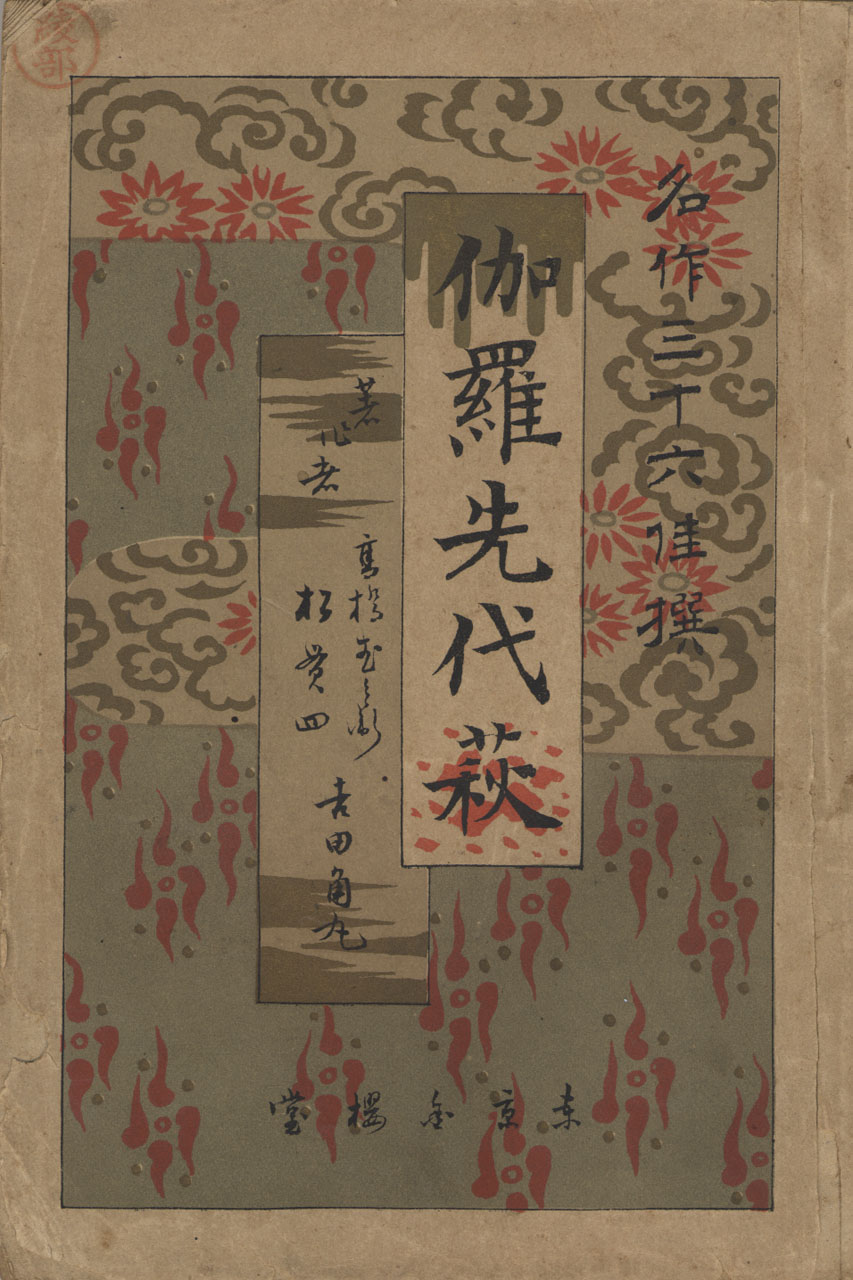 名作三十六佳撰
伽羅先代萩
著作者
高橋武兵衛
松貫四
吉田角丸
東京金櫻堂